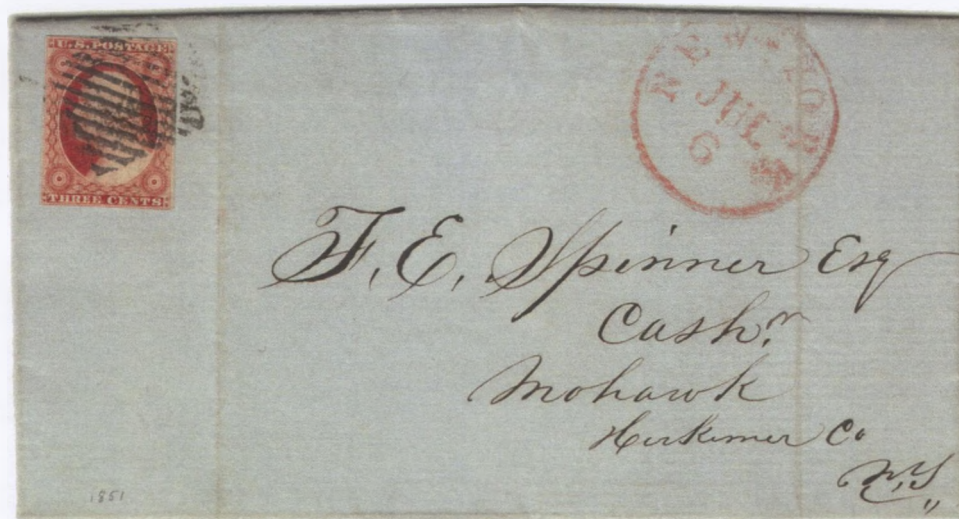 U.S. POSTAGE
THREE CENTS
NEW YORK
JUL
6
F. E. Spinner Esq
Cashr.
Mohawk
Herkimer Co
N.Y.
1851